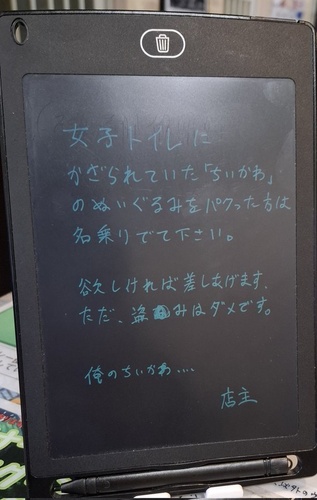 女子トイレに
かざられていた「ちいかわ」
のぬいぐるみをパクった方は
名乗りでて下さい。
欲しければ差しあげます、
ただ、盗みはダメです。
俺のちいかわ....
店主